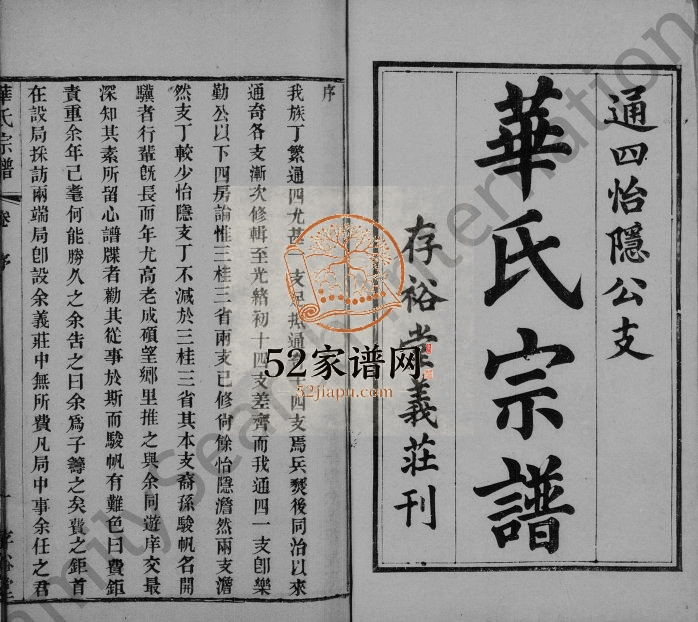 通四怡隱公支
華氏宗譜
存裕堂義莊刊
序
我族丁繁通四尤甚一支
十四支爲兵燹後同治以來
通奇各支漸次修輯至光緒初十四支差齊而我通四一支卽樂
勤公以下四房論惟三桂三省兩支已修尙餘怡隱澹然兩支澹
然支丁較少怡隱支丁不減於三桂三省其本支裔孫駿帆名開
驥者行輩旣長而年尤高老成碩望鄉里推之與余同遊庠交最
深知其素所留心譜牒者勸其從事於斯而駿帆有難色曰費鉅
責重余年已耄何能勝久之余告之曰余爲子籌之矣費之鉅首
在設局採訪兩端局卽設余義莊中無所費凡局中事余任之君
華氏宗譜
卷
序
一
存裕堂
52家谱网
52jiapu.com
FamilySearch International